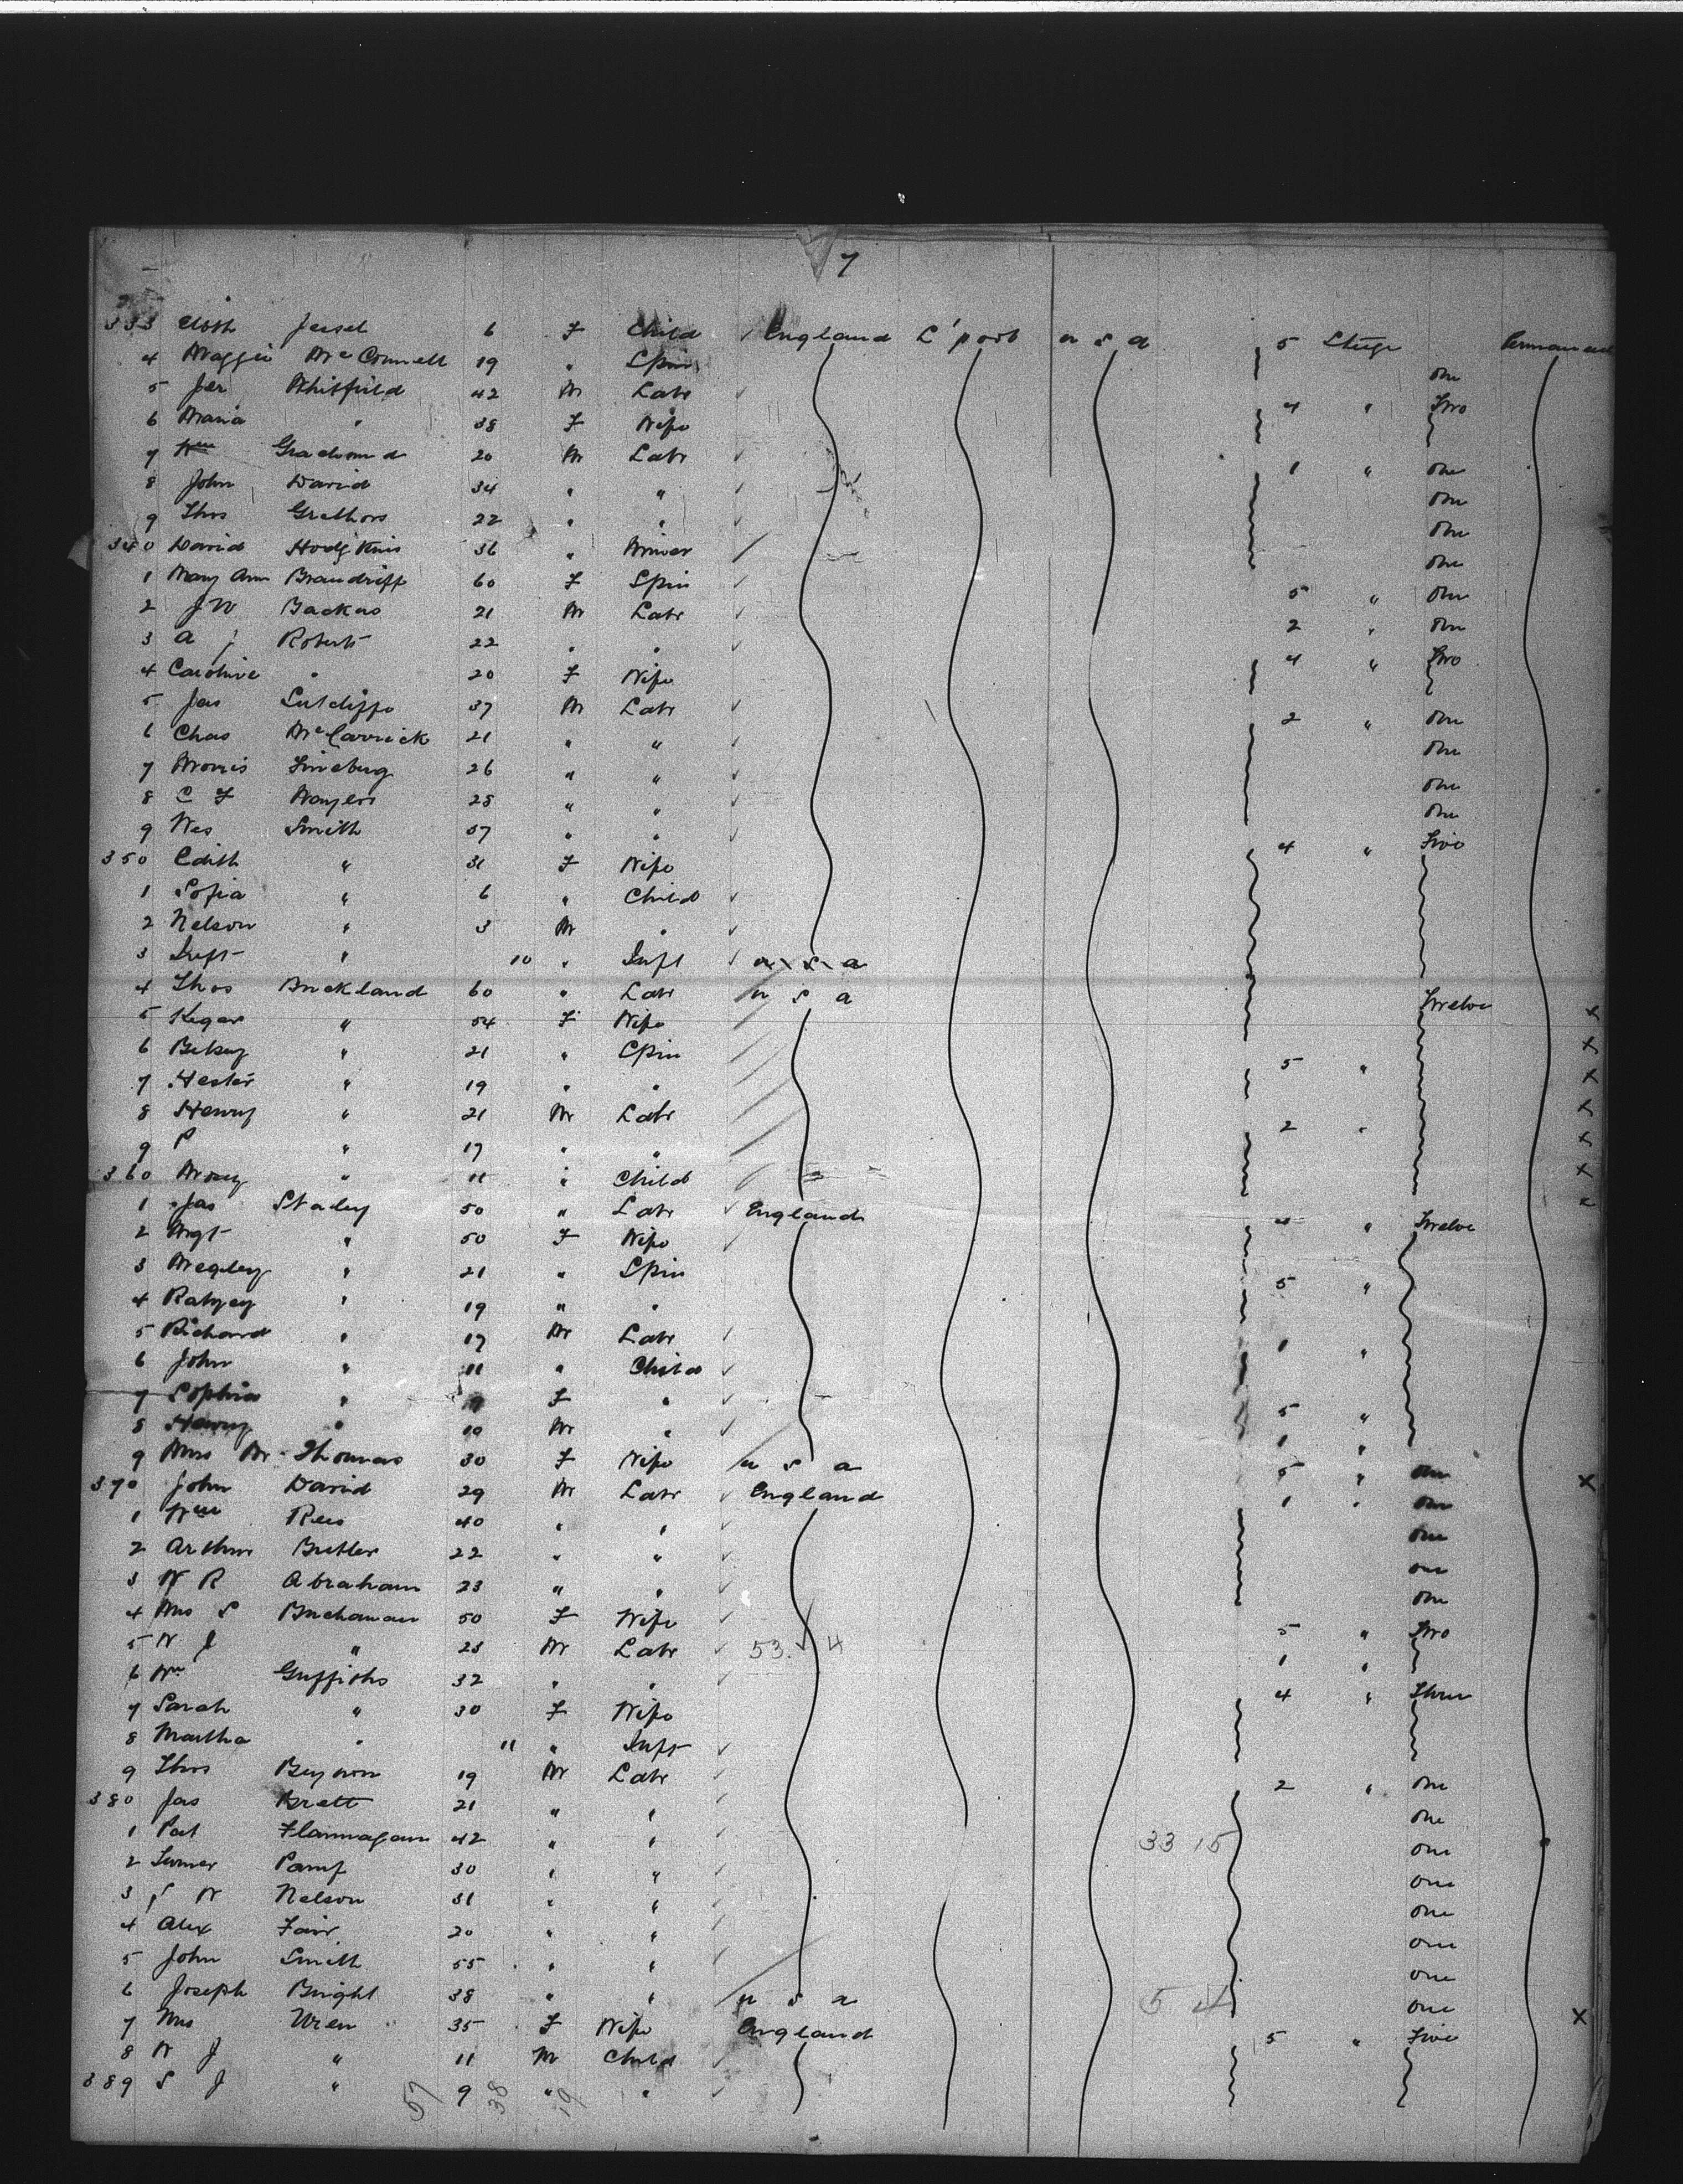 7
333 Jessel 6 F Child England L'pool u s a 5 Stege
4 Maggie McConnell 19 " Spin one
5 Jas Whitfield 42 M Labr 4 " Two
6 Maria " 38 F Wife
7 Wm 20 M Labr 1 " one
8 John David 34 " " one
9 Thos 22 " " one
340 David Hodgkins 36 " Miner one
1 Mary Ann Brandriff 60 F Spin 5 " one
2 J W Backas 21 M Labr 2 " one
3 A J Roberts 22 " " 4 " Two
4 Caroline " 20 F Wife
5 Jas Sutcliffe 37 M Labr 2 " one
6 Chas McCarrick 21 " " one
7 Morris Fineburg 26 " " one
8 C F 28 " " one
9 Wes Smith 37 " " 4 " Five
350 Edith " 31 F Wife
1 Sofia " 6 " Child
2 Nelson " 3 M "
3 Inft " 10 " Inft u s a
4 Thos Buckland 60 " Labr u s a Twelve
5 Kegar " 54 F Wife x
6 Betsy " 21 " Spin 5 " x
7 Hester " 19 " " x
8 Henry " 21 M Labr 2 " x
9 P " 17 " " x
360 " 11 " Child x
1 Jas Stadey 50 " Labr England 4 " Twelve
2 Mgt " 50 F Wife
3 " 21 " Spin 5 "
4 " 19 " "
5 Richard " 17 M Labr 1 "
6 John " 11 " Child
7 Sophia " F " 5 "
8 Henry " 10 M " 1 "
9 Mrs M Thomas 30 F Wife u s a 5 " one x
370 John David 29 M Labr England 1 " one
1 Wm Rees 40 " " one
2 Arthur Butler 22 " " one
3 W R Abraham 23 " " one
4 Mrs S Buchanan 50 F Wife 5 " Two
5 W J " 23 M Labr 53 4 1 "
6 Wm Griffiths 32 " " 4 " Three
7 Sarah " 30 F Wife
8 Martha " 11 " Inft
9 Thos Beynon 19 M Labr 2 " one
380 Jas Brett 21 " " one
1 Pat Flannagan 42 " " 33 15 one
2 30 " " one
3 S W Nelson 31 " " one
4 Alex Fair 20 " " one
5 John Smith 55 " " one
6 Joseph Bright 38 " " u s a 5 4 one x
7 Mrs Wren 35 F Wife England 5 " Five
8 W J " 11 M Child
389 S J " 9 " "
57 38 19